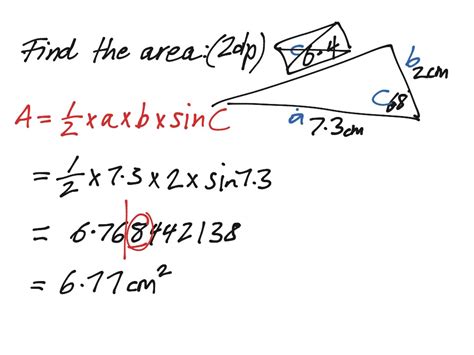 Find the area: (2dp)
c 6.4
b 2cm
C 68
a 7.3cm
A = 1/2 × a × b × sin C
= 1/2 × 7.3 × 2 × sin 7.3
= 6.768442138
= 6.77 cm²